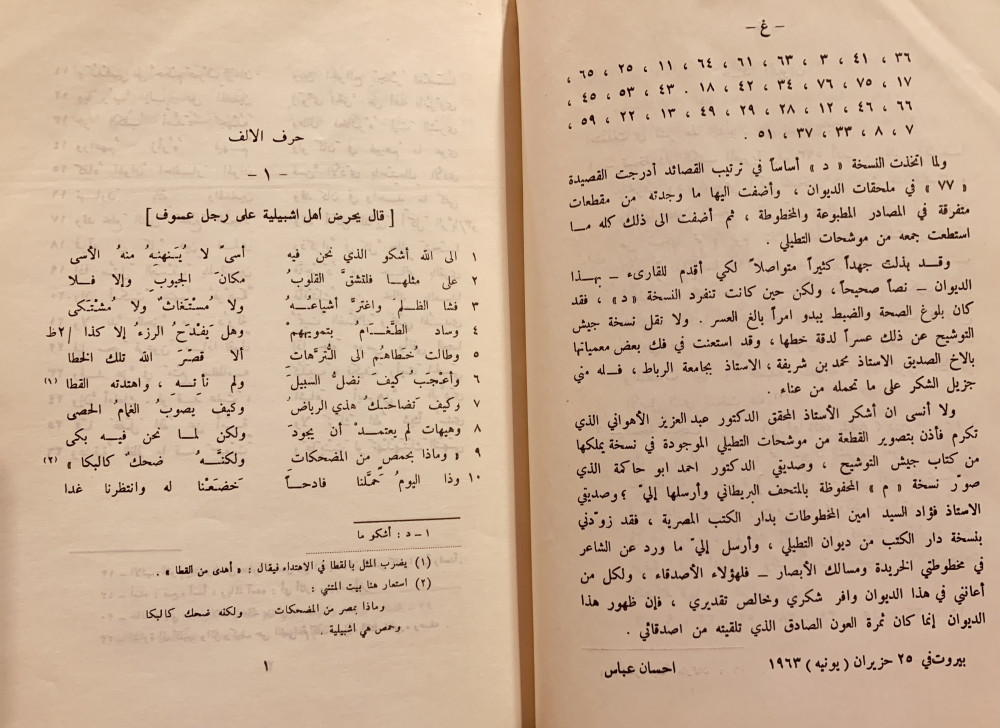 – غ –
٣٦ ، ٤١ ، ٣ ، ٦٣ ، ٦١ ، ٦٤ ، ١١ ، ٢٥ ، ٦٥ ،
١٧ ، ٧٥ ، ٧٦ ، ٣٤ ، ٤٢ ، ١٨ . ٤٣ ، ٥٣ ، ٤٥ ،
٦٦ ، ٤٦ ، ١٢ ، ٢٨ ، ٢٩ ، ٤٩ ، ١٣ ، ٢٢ ، ٥٩ ،
٧ ، ٨ ، ٣٣ ، ٣٧ ، ٥١ .
ولما اتخذت النسخة « د » أساساً في ترتيب القصائد أدرجت القصيدة
« ٧٧ » في ملحقات الديوان ، وأضفت اليها ما وجدته من مقطعات
متفرقة في المصادر المطبوعة والمخطوطة ، ثم أضفت الى ذلك كله مــا
استطعت جمعه من موشحات التطيلي .
وقــد بذلت جهداً كثيراً متواصلاً لكي أقدم للقارىء – بهــذا
الديوان – نصاً صحيحاً ، ولكن حين كانت تنفرد النسخة « د » ، فقد
كان بلوغ الصحة والضبط يبدو امراً بالغ العسر . ولا تقل نسخة جيش
التوشيح عن ذلك عسراً لدقة خطها ، وقد استعنت في فك بعض معمياتها
بالاخ الصديق الاستاذ محمد بن شريفة ، الاستاذ بجامعة الرباط ، فــله مني
جزيل الشكر على ما تحمله من عناء .
ولا أنسى ان أشكر الأستاذ المحقق الدكتور عبد العزيز الأهواني الذي
تكرم فأذن بتصوير القطعة من موشحات التطيلي الموجودة في نسخة يملكها
من كتاب جيش التوشيح ، وصديقي الدكتور احمد ابو حاكمة الذي
صوّر نسخة « م » المحفوظة بالمتحف البريطاني وأرسلها إليّ ؛ وصديقي
الاستاذ فؤاد السيد امين المخطوطات بدار الكتب المصرية ، فقد زوّدني
بنسخة دار الكتب من ديوان التطيلي ، وأرسل إليّ ما ورد عن الشاعر
في مخطوطتي الخريدة ومسالك الأبصار – فلهؤلاء الأصدقاء ، ولكل من
أعانني في هذا الديوان وافر شكري وخالص تقديري ، فإن ظهور هذا
الديوان إنما كان ثمرة العون الصادق الذي تلقيته من اصدقائي .
بيروت في ٢٥ حزيران ( يونيه ) ١٩٦٣ احسان عباس
حرف الالف
– ١ –
[ قال يحرض أهل اشبيلية على رجل عسوف ]
١ الى الله أشكو الذي نحن فيه أسىً لا يُنَهنهُ منهُ الأسى
٢ على مثلهــا فلتشقَّ القلوبُ مكانَ الجيوبِ وإلا فــلا
٣ فشا الظلمُ واغترَّ أشياعُــهُ ولا مُسْتَغاثٌ ولا مُشْتَكى
٤ وساد الطَّغَــامُ بتمويههمْ وهل يَفْدَحُ الرزءُ إلا كذا /٢ظ
٥ وطالت خُطاهُم الى التُّرَّهاتِ ألا قصَّرَ الله تلك الخطا
٦ وأعْجَبُ كيفَ نضلُّ السبيلَ ولم نأتِــهِ ، واهتدته القطا (١)
٧ وكيفَ تَضاحَكُ هذي الرياضُ وكيف يصوبُ الغمامُ الحصى
٨ وهيهات لم يعتمدْ أن يجودَ ولكن لمــا نحن فيــه بكى
٩ « وماذا بحمصٍ من المضحكات ولكنَّــهُ ضحكٌ كالبكا » (٢)
١٠ وذا اليومُ حَمَّلنا فادحــاً خَضَعْنا له وانتظرنا غدا
١ – د : أشكو ما
(١) يضرب المثل بالقطا في الاهتداء فيقال : « أهدى من القطا » .
(٢) استعار هنا بيت المتنبي :
وماذا بمصر من المضحكات ولكنه ضحك كالبكا
وحمص هي اشبيلية .
١